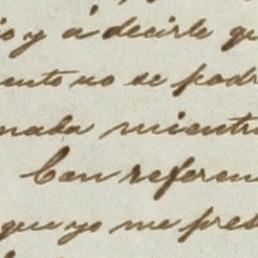 io y á decirle qu
ento no se podr
naba mientr
Con referen
que yo me pres